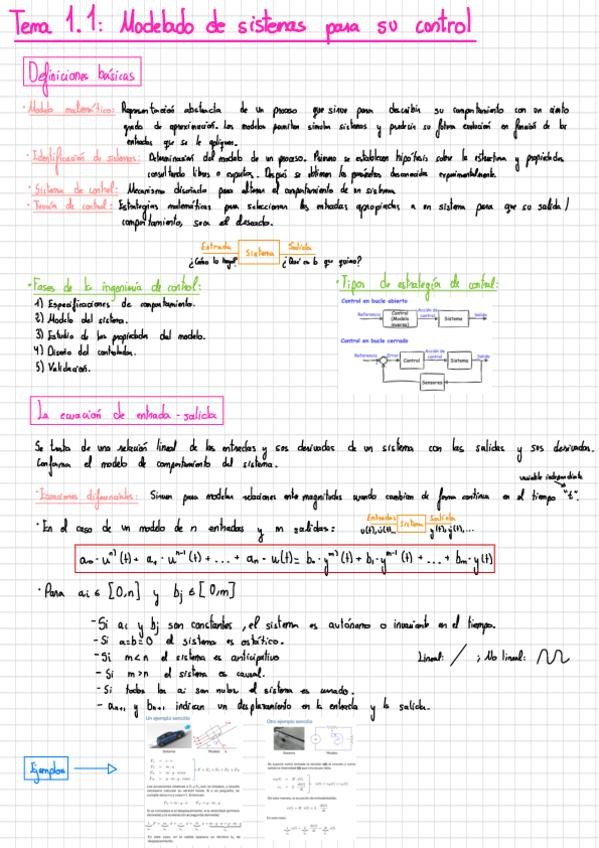 Tema 1.1: Modelado de sistemas para su control
Definiciones básicas
· Modelo matemático: Representación abstracta de un proceso que sirve para describir su comportamiento con un cierto
grado de aproximación. Los modelos permiten simular sistemas y predecir su futura evolución en función de las
entradas que se le apliquen.
· Identificación de sistemas: Determinación del modelo de un proceso. Primero se establecen hipótesis sobre la estructura y propiedades
consultando libros o expertos. Después se obtienen los parámetros desconocidos experimentalmente.
· Sistema de control: Mecanismo diseñado para alterar el comportamiento de un sistema.
· Teoría de control: Estrategias matemáticas para seleccionar las entradas apropiadas a un sistema para que su salida/
comportamiento, sea el deseado.
Entrada Sistema Salida
¿Cómo lo hago? ¿Qué es lo que quiero?
· Fases de la ingeniería de control:
1) Especificaciones de comportamiento.
2) Modelo del sistema.
3) Estudio de las propiedades del modelo.
4) Diseño del controlador.
5) Validación.
· Tipos de estrategia de control:
Control en bucle abierto
Referencia Control (Modelo inverso) Acción de control Sistema Salida
Control en bucle cerrado
Referencia Error Control Acción de control Sistema Salida
Sensores
La ecuación de entrada-salida
Se trata de una relación lineal de las entradas y sus derivadas de un sistema con las salidas y sus derivadas.
Conforma el modelo de comportamiento del sistema.
variable independiente
· Ecuaciones diferenciales: Sirven para modelar relaciones entre magnitudes cuando cambian de forma continua en el tiempo "t".
· En el caso de un modelo de n entradas y m salidas:
Entradas Sistema Salidas
u(t), u̇(t)... y(t), ẏ(t), ...
a₀ · uⁿ⁾(t) + a₁ · uⁿ⁻¹⁾(t) + ... + aₙ · u(t) = b₀ · yᵐ⁾(t) + b₁ · yᵐ⁻¹⁾(t) + ... + bₘ · y(t)
· Para ai ∈ [0,n] y bj ∈ [0,m]
- Si ai y bj son constantes, el sistema es autónomo o invariante en el tiempo.
- Si a=b=0 el sistema es estático.
- Si m<n el sistema es anticipativo
Lineal: ; No lineal:
- Si m>n el sistema es causal.
- Si todos los ai son nulos el sistema es cerrado.
- aₙ₊₁ y bₘ₊₁ indican un desplazamiento en la entrada y la salida.
Ejemplos
Un ejemplo sencillo
Sistema Modelo
Otro ejemplo sencillo
Sistema Modelo